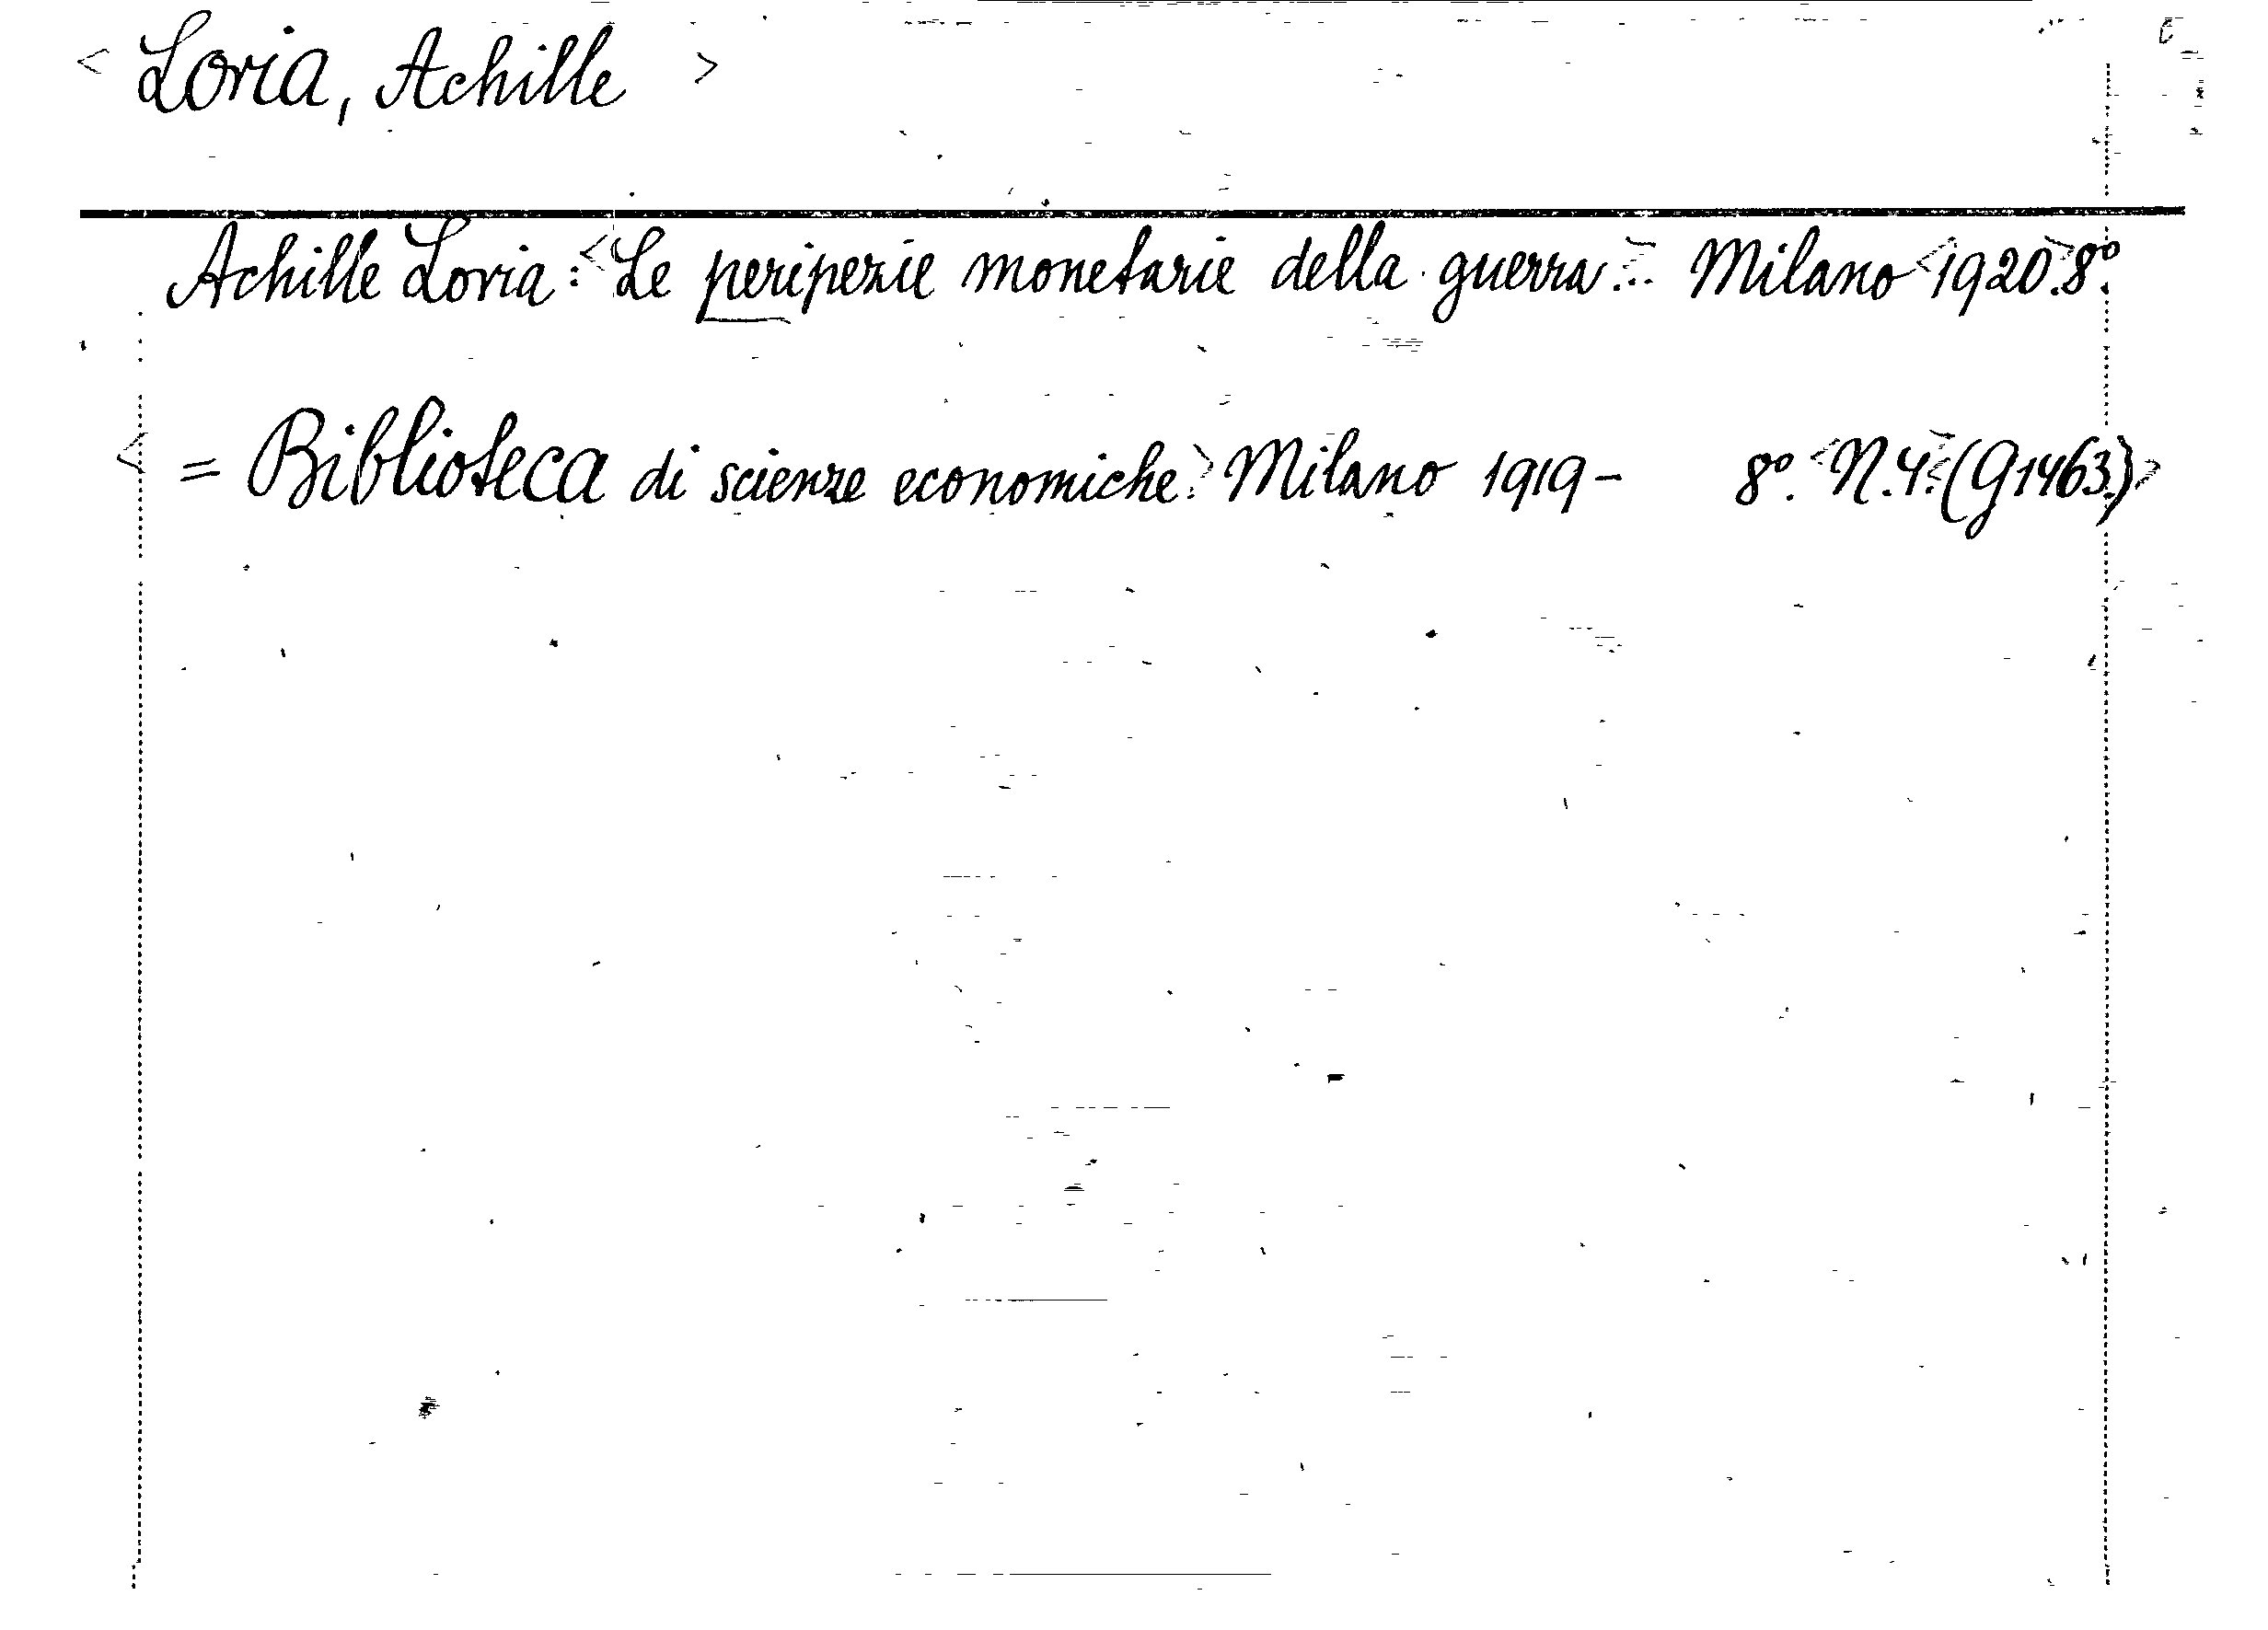 < Loria, Achille >
Achille Loria: <Le peripezie monetarie della guerra...> Milano <1920>. 8°.
< = Biblioteca di scienze economiche.> Milano 1919- 8°. <N.4.> <(G1463.)>